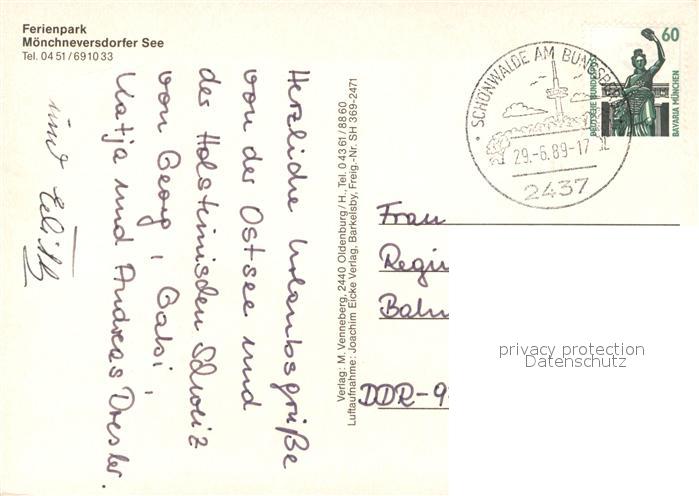 Ferienpark
Mönchneversdorfer See
Tel. 04 51 / 69 10 33
Herzliche Urlaubsgrüße
von der Ostsee und
der Holsteinischen Schweiz
von Georg, Gabi,
Katja und Andreas Dresler.
und
Verlag: M. Venneberg, 2440 Oldenburg/H., Tel. 0 43 61 / 88 60
Luftaufnahme: Joachim Eicke Verlag, Barkelsby, Freig.-Nr. SH 369-2471
SCHÖNWALDE AM BUNGSBE
29.-6.89-17
2437
60
DEUTSCHE BUNDESPOST
BAVARIA MÜNCHEN
Frau
Regi
Bahn
DDR-9
privacy protection
Datenschutz